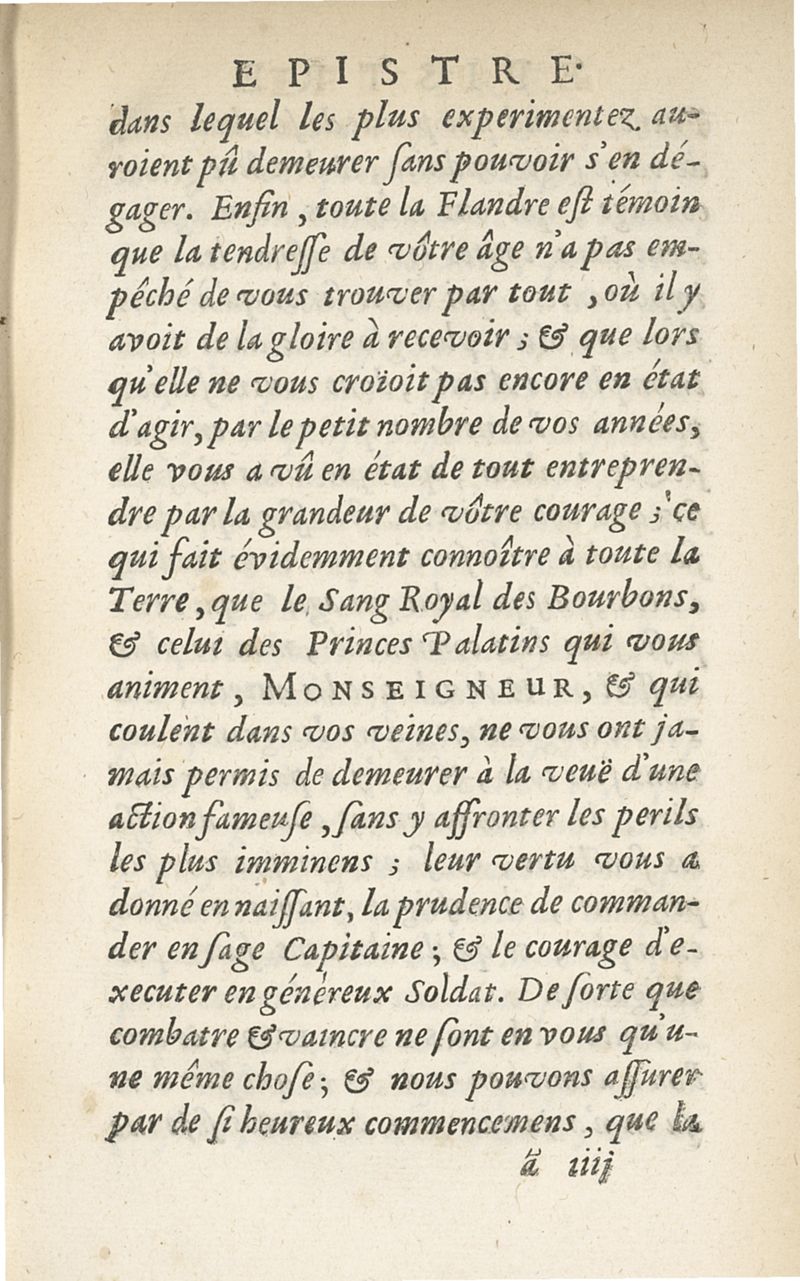 EPISTRE.
dans lequel les plus experimentez au-
roient pû demeurer ſans pouvoir s'en dé-
gager. Enfin, toute la Flandre eſt témoin
que la tendreſſe de vôtre âge n'a pas em-
pêché de vous trouver par tout, où il y
avoit de la gloire à recevoir; & que lors
qu'elle ne vous croïoit pas encore en état
d'agir, par le petit nombre de vos années,
elle vous a vû en état de tout entrepren-
dre par la grandeur de vôtre courage; ce
qui fait évidemment connoître à toute la
Terre, que le Sang Royal des Bourbons,
& celui des Princes Palatins qui vous
animent, MONSEIGNEUR, & qui
coulent dans vos veines, ne vous ont ja-
mais permis de demeurer à la veuë d'une
action fameuſe, ſans y affronter les perils
les plus imminens; leur vertu vous a
donné en naiſſant, la prudence de comman-
der en ſage Capitaine; & le courage d'e-
xecuter en génèreux Soldat. De ſorte que
combatre & vaincre ne ſont en vous qu'u-
ne même choſe; & nous pouvons aſſurer
par de ſi heureux commencemens, que la
ã iiij